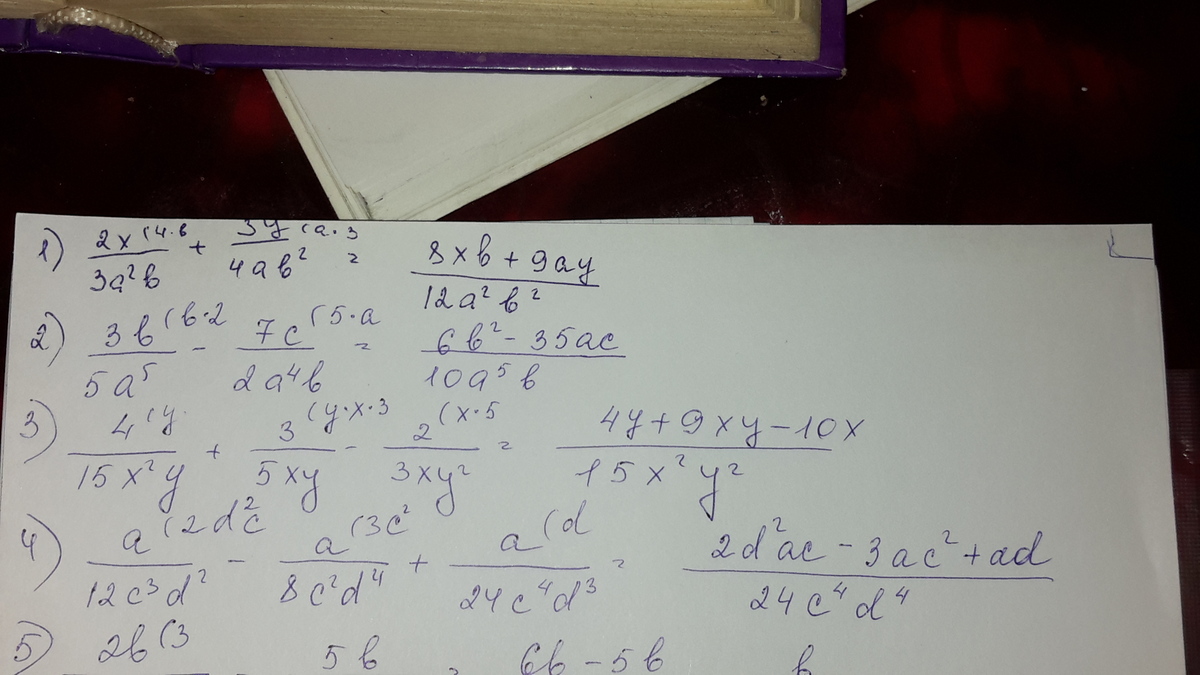 1) 2x(4·b / 3a²b + 3y(a·3 / 4ab² = 8xb + 9ay / 12a²b²
2) 3b(b·2 / 5a⁵ - 7c(5·a / 2a⁴b = 6b² - 35ac / 10a⁵b
3) 4(y / 15x²y + 3(y·x·3 / 5xy - 2(x·5 / 3xy² = 4y + 9xy - 10x / 15x²y²
4) a(2d²c / 12c³d² - a(3c² / 8c²d⁴ + a(d / 24c⁴d³ = 2d²ac - 3ac² + ad / 24c⁴d⁴
5) 2b(3 - 5b = 6b - 5b b